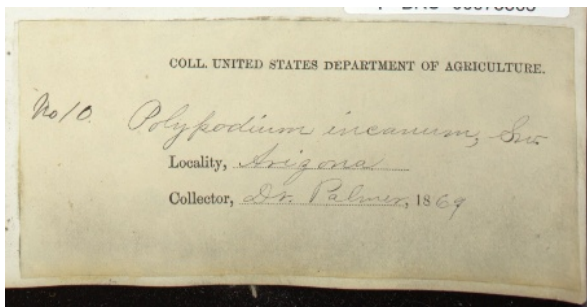 COLL. UNITED STATES DEPARTMENT OF AGRICULTURE.
No 10. Polypodium incanum, Sw.
Locality, Arizona
Collector, Dr. Palmer, 1869